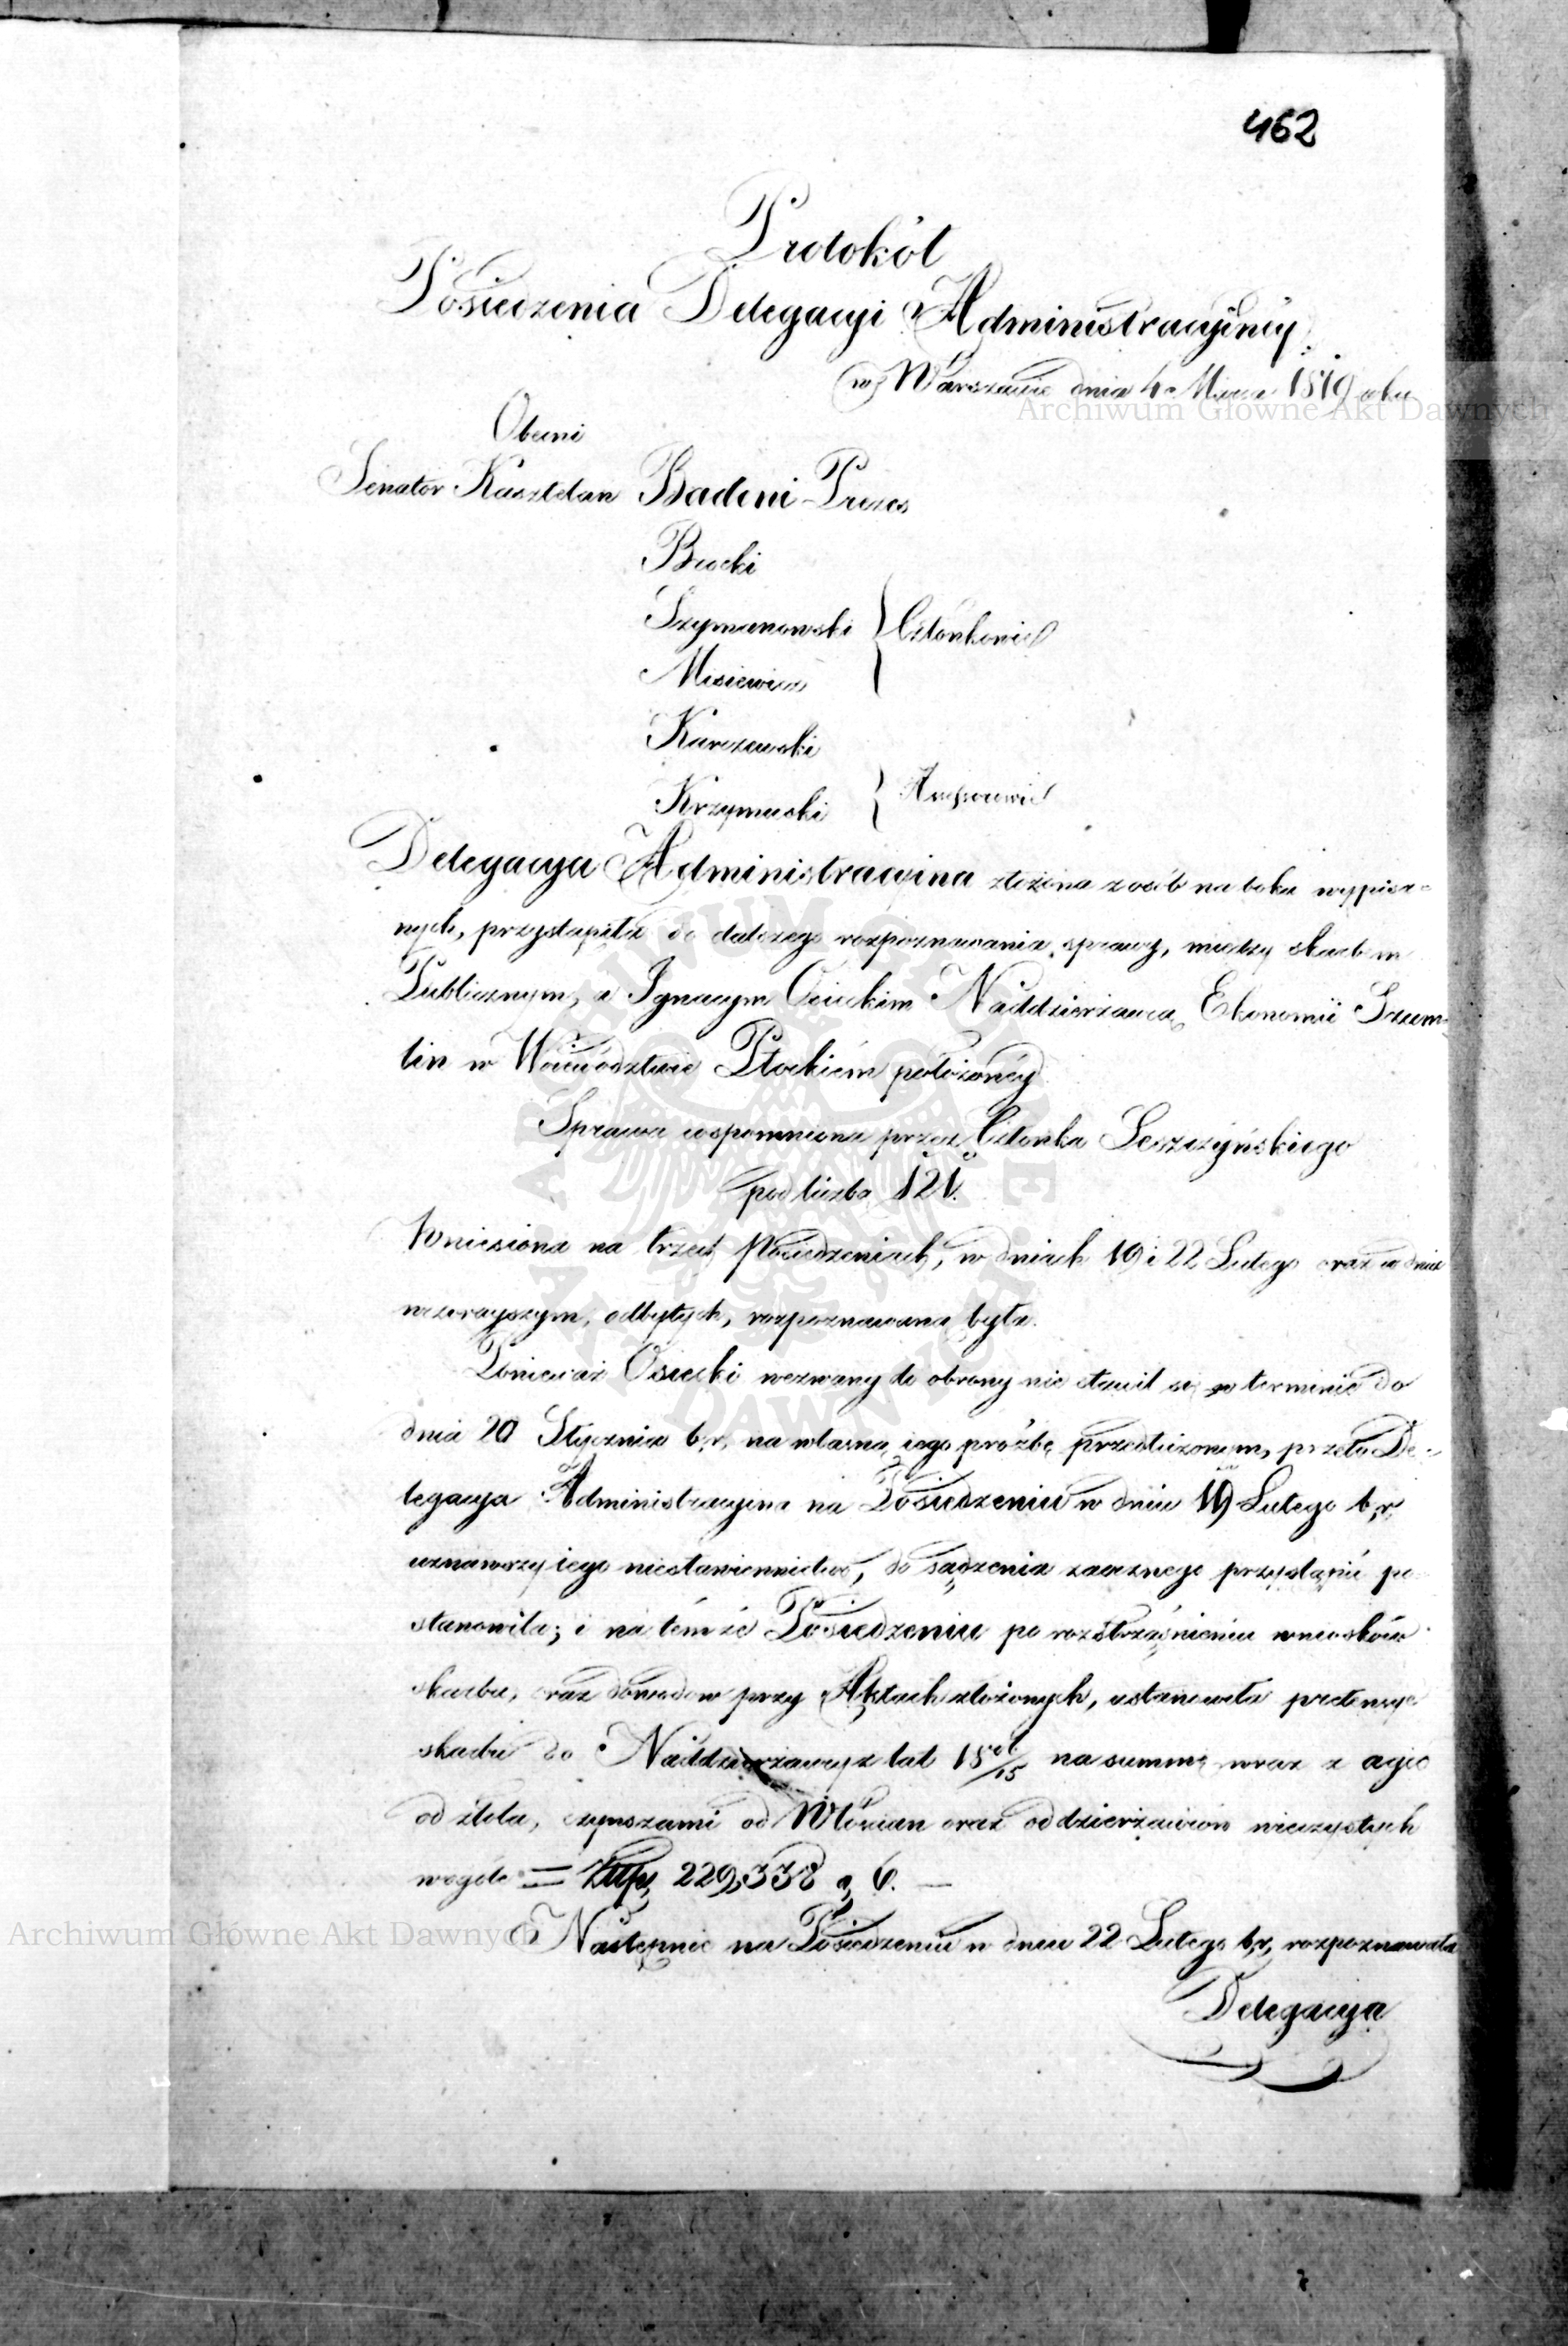 462
Protokół
Posiedzenia Delegacyi Administracyiney
w Warszawie dnia 4 Marca 1819 roku
Obecni
Senator Kasztelan Badeni Prezes
Brocki
Szymanowski } Członkowie
Misiewicz
Karczewski
Krzymuski }
Delegacya Administracyina złożona z osób na boku wypisa-
nych, przystąpiła do dalszego rozpoznawania sprawy, między skarbem
Publicznym, a Ignacym Osieckim Naddzierżawcą Ekonomii Szum-
lin w Woiewództwie Płockiém położonéy
Sprawa wspomniona przez Członka Leszczyńskiego
pod liczbą 121.
Wniesiona na trzech Posiedzeniach, w dniach 19 i 22 Lutego oraz w dniu
wczorayszym, odbytych, rozpoznawana była.
Ponieważ Osiecki wezwany do obrony nie stawił się w terminie do
dnia 20 Stycznia b.r. na własną iego prośbę przedłużonym, przeto De-
legacya Administracyina na Posiedzeniu w dniu 19 Lutego b.r.
uznawszy iego niestawiennictwo, do sądzenia zaocznego przystąpić po
stanowiła; i na témże Posiedzeniu po roztrząśnieniu wniosków
skarbu, oraz dowodów przy Aktach złożonych, ustanowiła pretensye
skarbu do Naddzierżawcy z lat 18 /15 na summę wraz z agio
od złota, czynszami od Włościan oraz od dzierżawców wieczystych
wogóle = Złłp. 229,338 g. 6. —
Następnie na Posiedzeniu w dniu 22 Lutego b.r. rozpoznawała
Delegacya
Archiwum Główne Akt Dawnych
Archiwum Główne Akt Dawnych